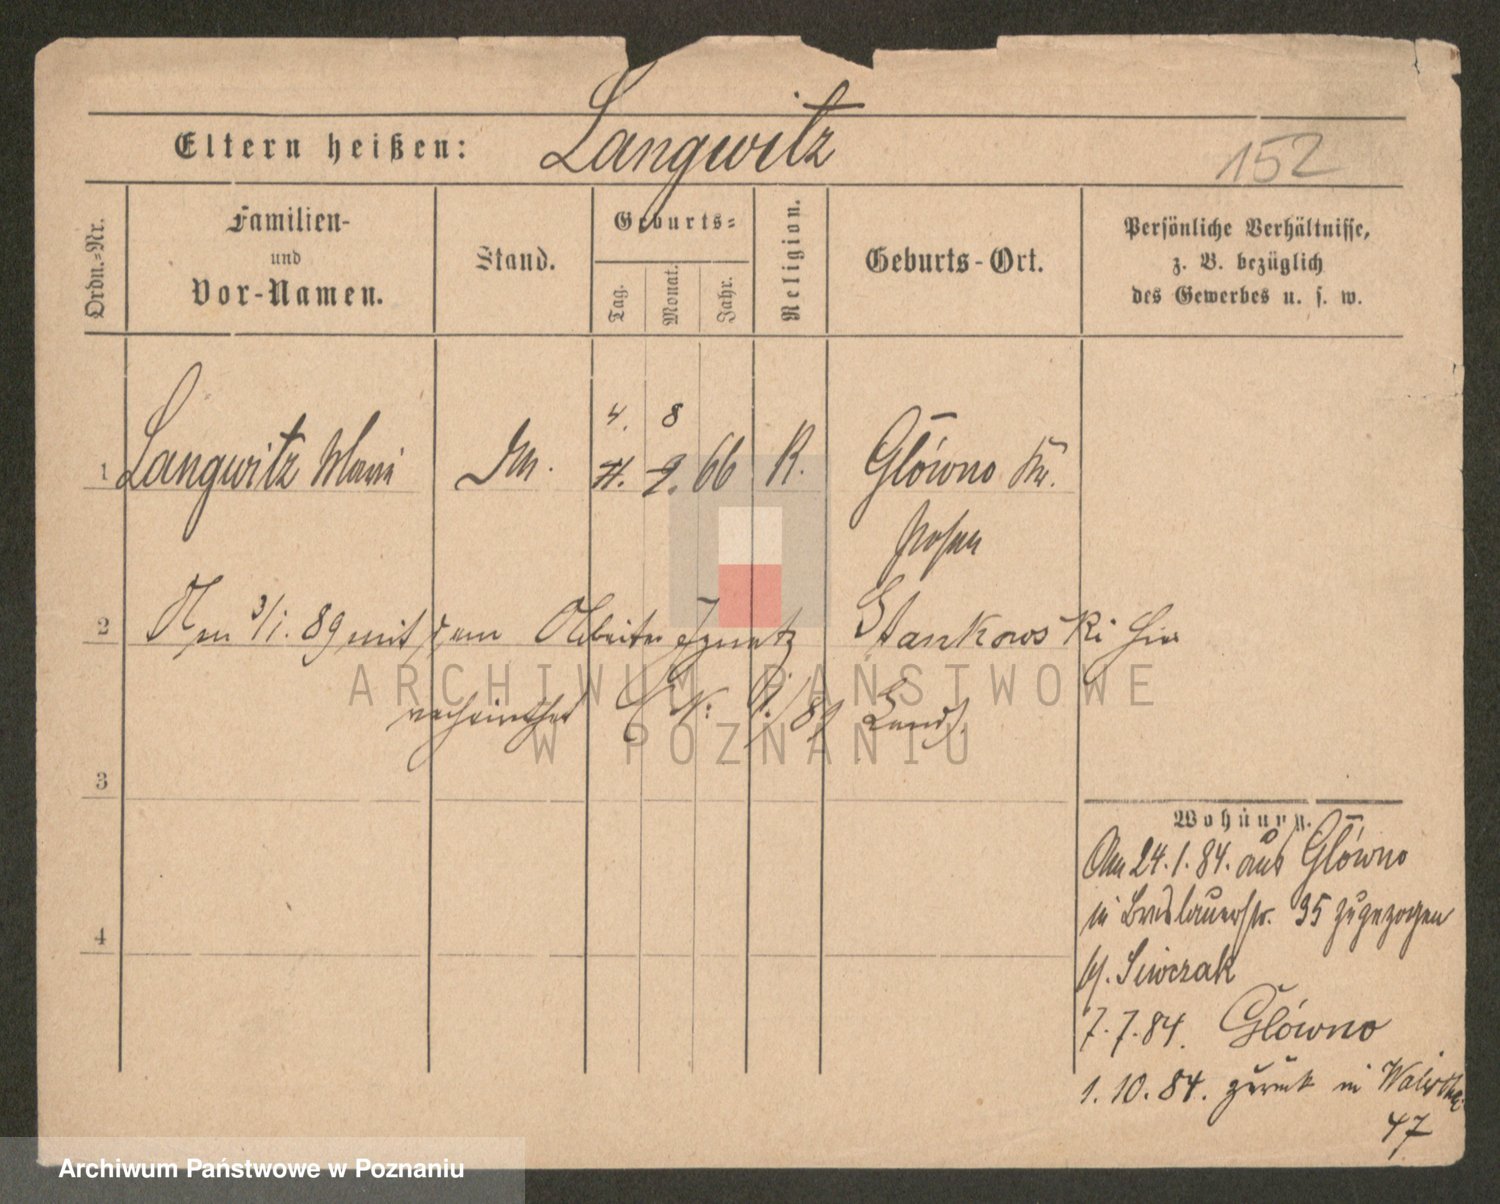 Eltern heißen: Langwitz
152
Ordn.=Nr.
Familien-
und
Vor-Namen.
Stand.
Geburts=
Tag.
Monat.
Jahr.
Religion.
Geburts-Ort.
Persönliche Verhältnisse,
z. B. bezüglich
des Gewerbes u. s. w.
4. 8
1 Langwitz Maria 66 R. Główno Kr.
Posen
2 Am 3/1. 89 mit dem Arbeiter Ignatz Stankowski hier
verheirathet /89 Lands.
3
4
Wohnung.
Am 24.1.84. aus Główno
in Breslauerstr. 35 zugezogen
bei. Siwczak
7.7.84. Główno
1.10.84. zurück in
47
ARCHIWUM PAŃSTWOWE
W POZNANIU
Archiwum Państwowe w Poznaniu